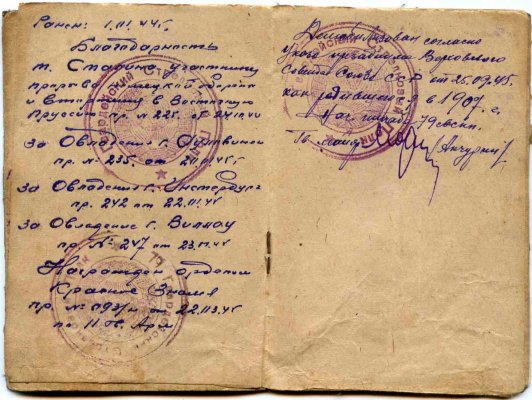 Ранен: 1.III.44 г.
Благодарность
т. Сталина участнику
прорыва немецкой обороны
и вторжения в Восточную
Пруссию пр. № 225. от
за Овладения г.
пр. № 235. от
За Овладения г. Инстербург
пр. 242 от 22.
За Овладение г. Вилау
пр. № 247 от 23.
Награжден орденом
Красное Знамя
пр. № от 22.
по 11 Гв. Арм
Демобилизован согласно
Указа президиума Верховного
Совета Союза ССР от 25.09.45.
как родившегося в 1907 г.
Нач. штаба 79
майор